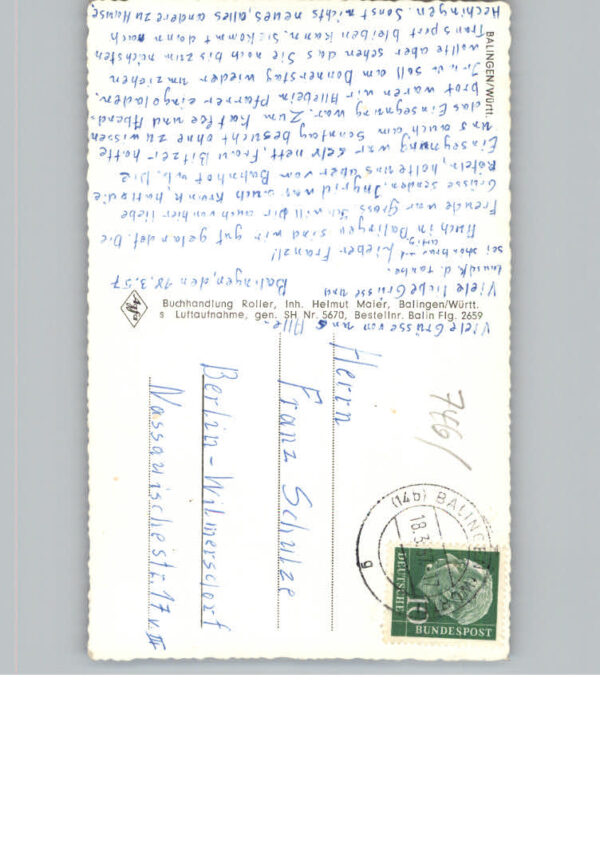 BALINGEN/Württ.
Balingen, den 18.3.57
Lieber Franzl!
Auch in Balingen sind wir gut gelandet. Die
Freude war gross. Ich will Dir auch von hier liebe
Grüsse senden. Ingrid war auch krank, hatte die
Röteln, holte uns aber vom Bahnhof ab. Die
Einsegnung war sehr nett, Frau Bitzer hatte
uns auch am Sonntag besucht ohne zu wissen
das Einsegnung war. Zum Kaffee und Abend-
brot waren wir Alle beim Pfarrer eingeladen.
Ir. u. U. soll am Donnerstag wieder umziehen
wollte aber sehen das Sie noch bis zum nächsten
Transport bleiben kann. Sie kommt dann nach
Hechingen. Sonst nichts neues, alles andere zu Hause.
Viele liebe Grüsse und
sei schön brav und artig
Viele Grüsse von uns Alle.
Agfa
Buchhandlung Roller, Inh. Helmut Maier, Balingen/Württ.
s Luftaufnahme, gen. SH Nr. 5670, Bestellnr. Balin Flg. 2659
Herrn
Franz Schulze
Berlin-Wilmersdorf
Nassauischestr. 17 v. III
746/
(14b) BALINGEN (WÜRTT)
18.3.57
g
10
DEUTSCHE
BUNDESPOST